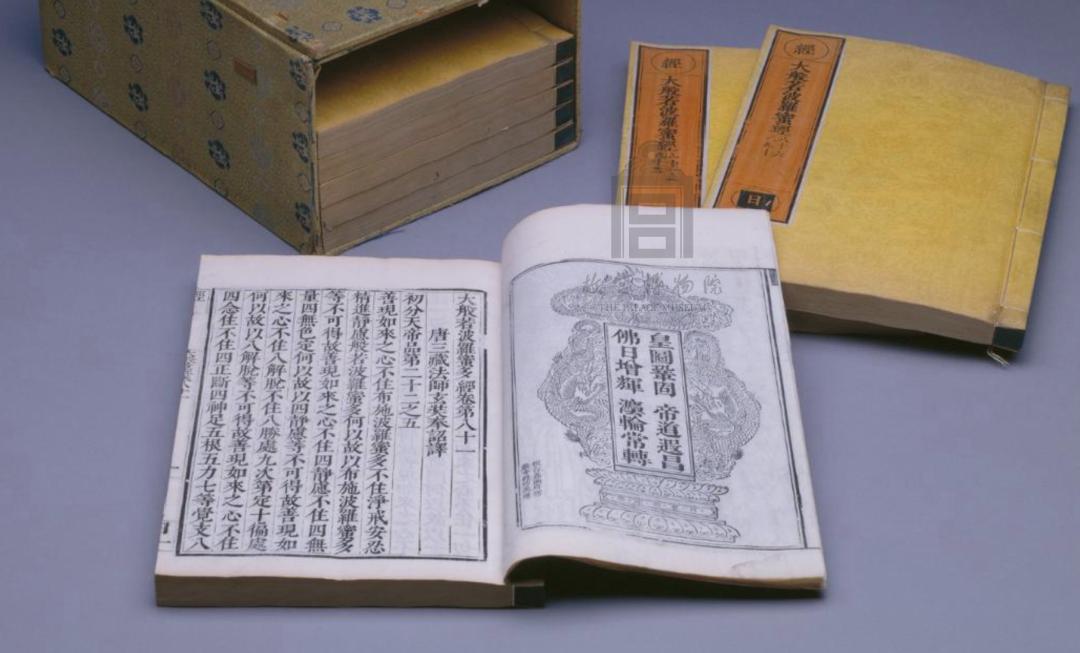 經
大般若波羅蜜經
經
大般若波羅蜜經
故宮博物院
THE PALACE MUSEUM
皇圖鞏固 帝道遐昌
佛日增輝 灋輪常轉
大般若波羅蜜多經卷第八十一
唐三藏法師玄奘奉詔譯
初分天帝品第二十二之五
善現如來之心不住布施波羅蜜多不住淨戒安忍
精進靜慮般若波羅蜜多何以故以布施波羅蜜多
等不可得故善現如來之心不住四靜慮不住四無
量四無色定何以故以四靜慮等不可得故善現如
來之心不住八解脫不住八勝處九次第定十徧處
何以故以八解脫等不可得故善現如來之心不住
四念住不住四正斷四神足五根五力七等覺支八